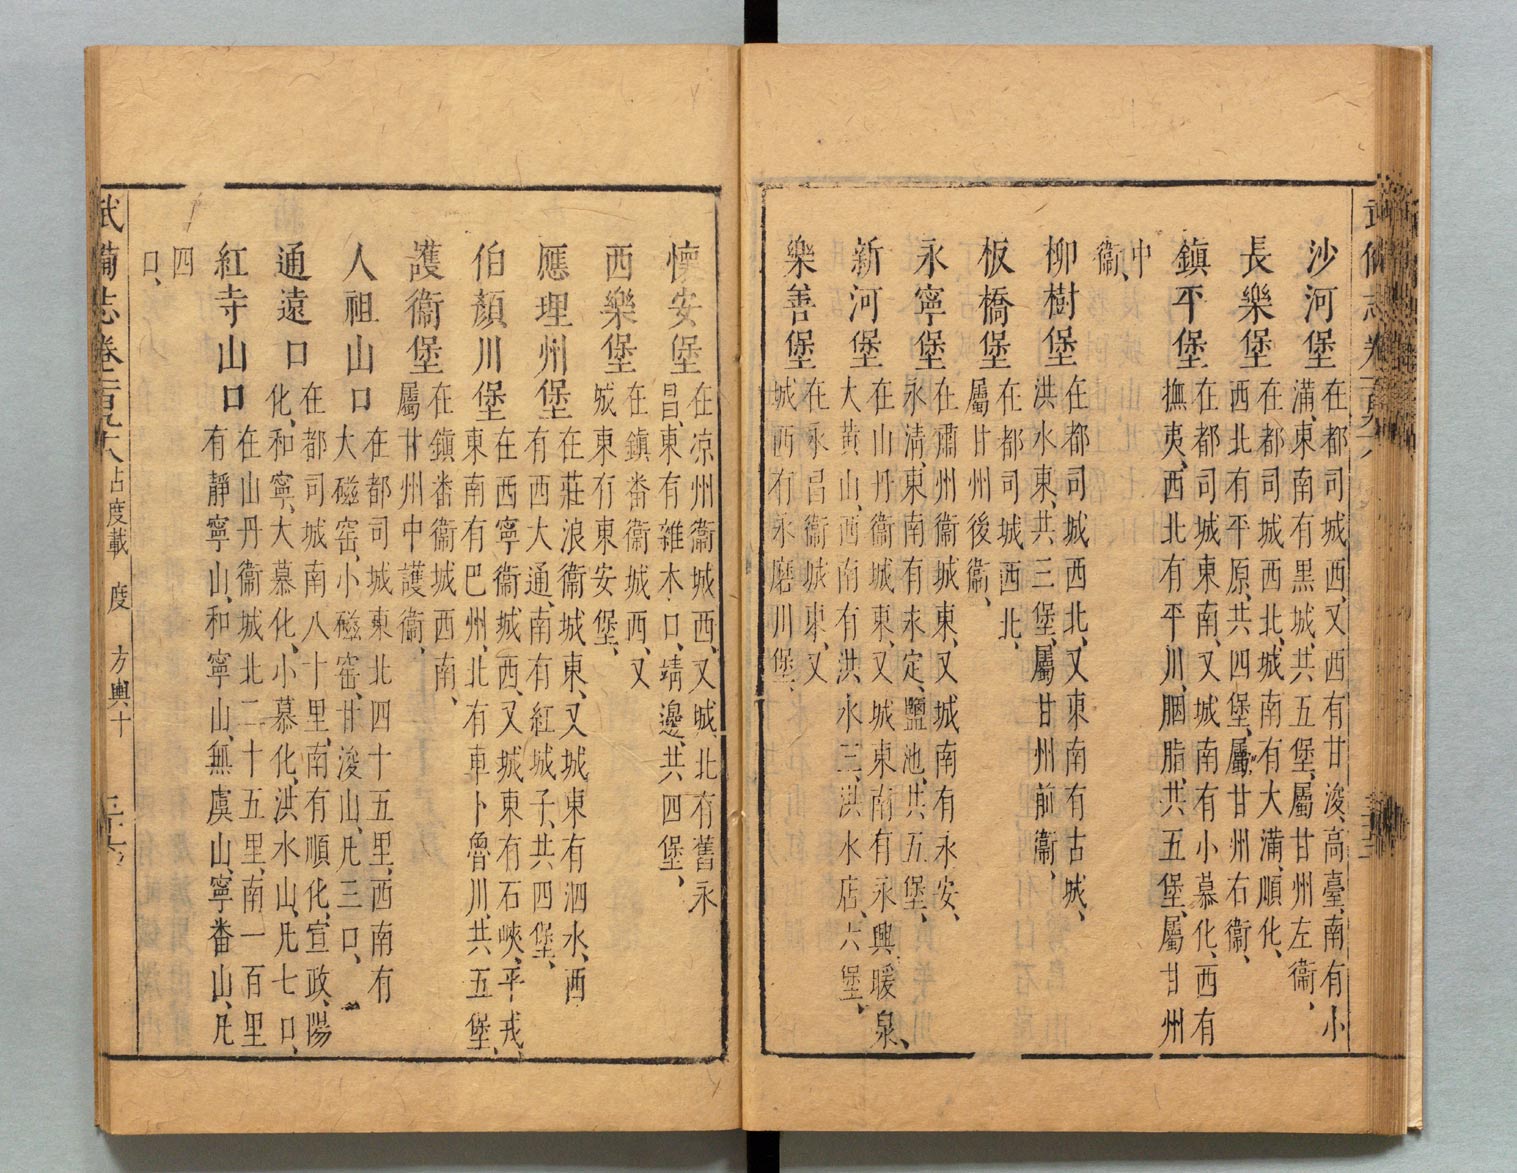 沙河堡在都司城西又西有甘浚、高臺、南有小
滿、東南有黒城、共五堡、屬甘州左衞、
長樂堡在都司城西北、城南有大滿、順化、
西北有平原、共四堡、屬甘州右衞、
鎮平堡在都司城東南、又城南有小慕化、西有
撫夷、西北有平川、胭脂、共五堡、屬甘州
中
衞、
柳樹堡在都司城西北、又東南有古城、
洪水東、共三堡、屬甘州前衞、
板橋堡在都司城西北、
屬甘州後衞、
永寧堡在肅州衞城東、又城南有永安、
永清、東南有永定、鹽池、共五堡、
新河堡在山丹衞城東、又城東南有永興、暖泉、
大黄山、西南有洪水三、洪水店、六堡、
樂善堡在永昌衞城東、又
城西有永磨川堡、
懷安堡在凉州衞城西、又城北有舊永
昌、東有雜木口、靖邊、共四堡、
西樂堡在鎮番衞城西、又
城東有東安堡、
應理州堡在莊浪衞城東、又城東有泗水、西
有西大通、南有紅城子、共四堡、
伯顏川堡在西寧衞城西、又城東有石峽、平戎、
東南有巴州、北有車卜魯川、共五堡、
護衞堡在鎮番衞城西南、
屬甘州中護衞、
人祖山口在都司城東北四十五里、西南有
大磁窑、小磁窑、甘浚山、凡三口、
通遠口在都司城南八十里、南有順化、宣政、陽
化、和寧、大慕化、小慕化、洪水山、凡七口、
紅寺山口在山丹衞城北二十五里、南一百里
有靜寧山、和寧山、無虞山、寧番山、凡
四
口、
武備志卷二百九 占度載 度 方輿十